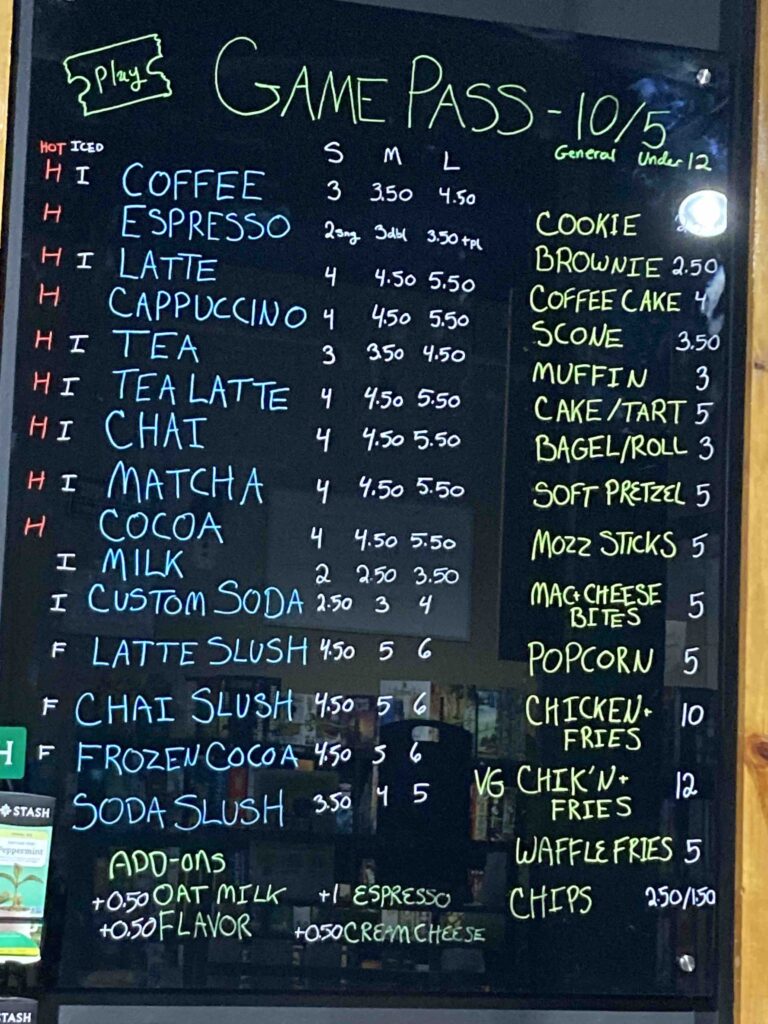 Play GAME PASS - 10/5
General Under 12
HOT ICED S M L
H I COFFEE 3 3.50 4.50
H ESPRESSO 2sng 3dbl 3.50+pl
H I LATTE 4 4.50 5.50
H CAPPUCCINO 4 4.50 5.50
H I TEA 3 3.50 4.50
H I TEA LATTE 4 4.50 5.50
H I CHAI 4 4.50 5.50
H I MATCHA 4 4.50 5.50
H COCOA 4 4.50 5.50
I MILK 2 2.50 3.50
I CUSTOM SODA 2.50 3 4
F LATTE SLUSH 4.50 5 6
F CHAI SLUSH 4.50 5 6
F FROZEN COCOA 4.50 5 6
SODA SLUSH 3.50 4 5
ADD-ONS
+0.50 OAT MILK +1 ESPRESSO
+0.50 FLAVOR +0.50 CREAM CHEESE
COOKIE
BROWNIE 2.50
COFFEE CAKE 4
SCONE 3.50
MUFFIN 3
CAKE/TART 5
BAGEL/ROLL 3
SOFT PRETZEL 5
MOZZ STICKS 5
MAC+CHEESE
BITES 5
POPCORN 5
CHICKEN+
FRIES 10
VG CHIK'N+
FRIES 12
WAFFLE FRIES 5
CHIPS 2.50/1.50
H
STASH
Peppermint
STASH